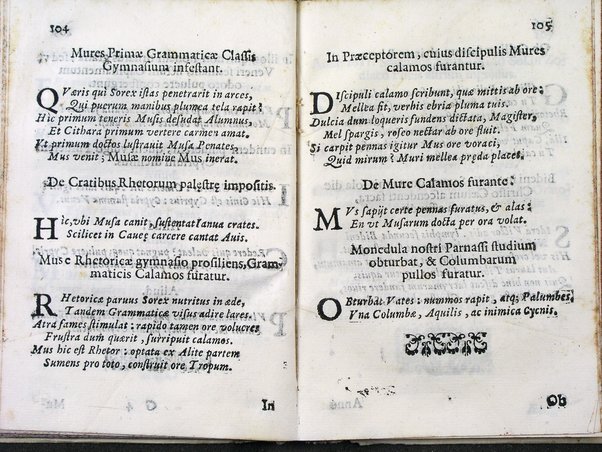 104
Mures Primæ Grammaticæ Classis
Gymnasium infestant.
QVæris qui Sorex istas penetrarit in arces,
Qui puerum manibus plumea tela rapit?
Hic primum teneris Musis desudat Alumnus,
Et Cithara primum vertere carmen amat.
Vt primum doctos lustrauit Musa Penates,
Mus venit; Musæ nomine Mus inerat.
De Cratibus Rhetorum palęstrę impositis.
HIc, vbi Musa canit, sustentat Ianua crates.
Scilicet in Caueę carcere cantat Auis.
Mus e Rhetoricæ gymnasio prosiliens, Gram-
maticis Calamos furatur.
RHetoricæ paruus Sorex nutritus in æde,
Tandem Grammaticæ visus adire lares.
Atra fames stimulat: rapido tamen ore volucres
Frustra dum quærit, surripuit calamos.
Mus hic est Rhetor: optata ex Alite partem
Sumens pro toto, construit ore Tropum.
G 4
In
105
In Præceptorem, cuius discipulis Mures
calamos furantur.
DIscipuli calamo scribunt, quæ mittis ab ore:
Mellea fit, verbis ebria pluma tuis.
Dulcia dum loqueris fundens dictata, Magister,
Mel spargis, roseo nectar ab ore fluit.
Si carpit pennas igitur Mus ore voraci,
Quid mirum? Muri mellea pręda placet.
De Mure Calamos furante.
MVs sapijt certe pennas furatus, & alas:
En vt Musarum docta per ora volat.
Monedula nostri Parnassi studium
obturbat, & Columbarum
pullos furatur.
OBturbat Vates: nummos rapit, atq; Palumbes,
Vna Columbæ, Aquilis, ac inimica Cycnis.
Ob